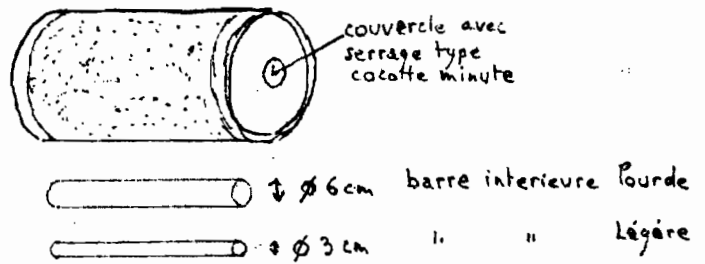 couvercle avec
serrage type
cocotte minute
ø 6 cm barre interieure lourde
ø 3 cm " " Légére